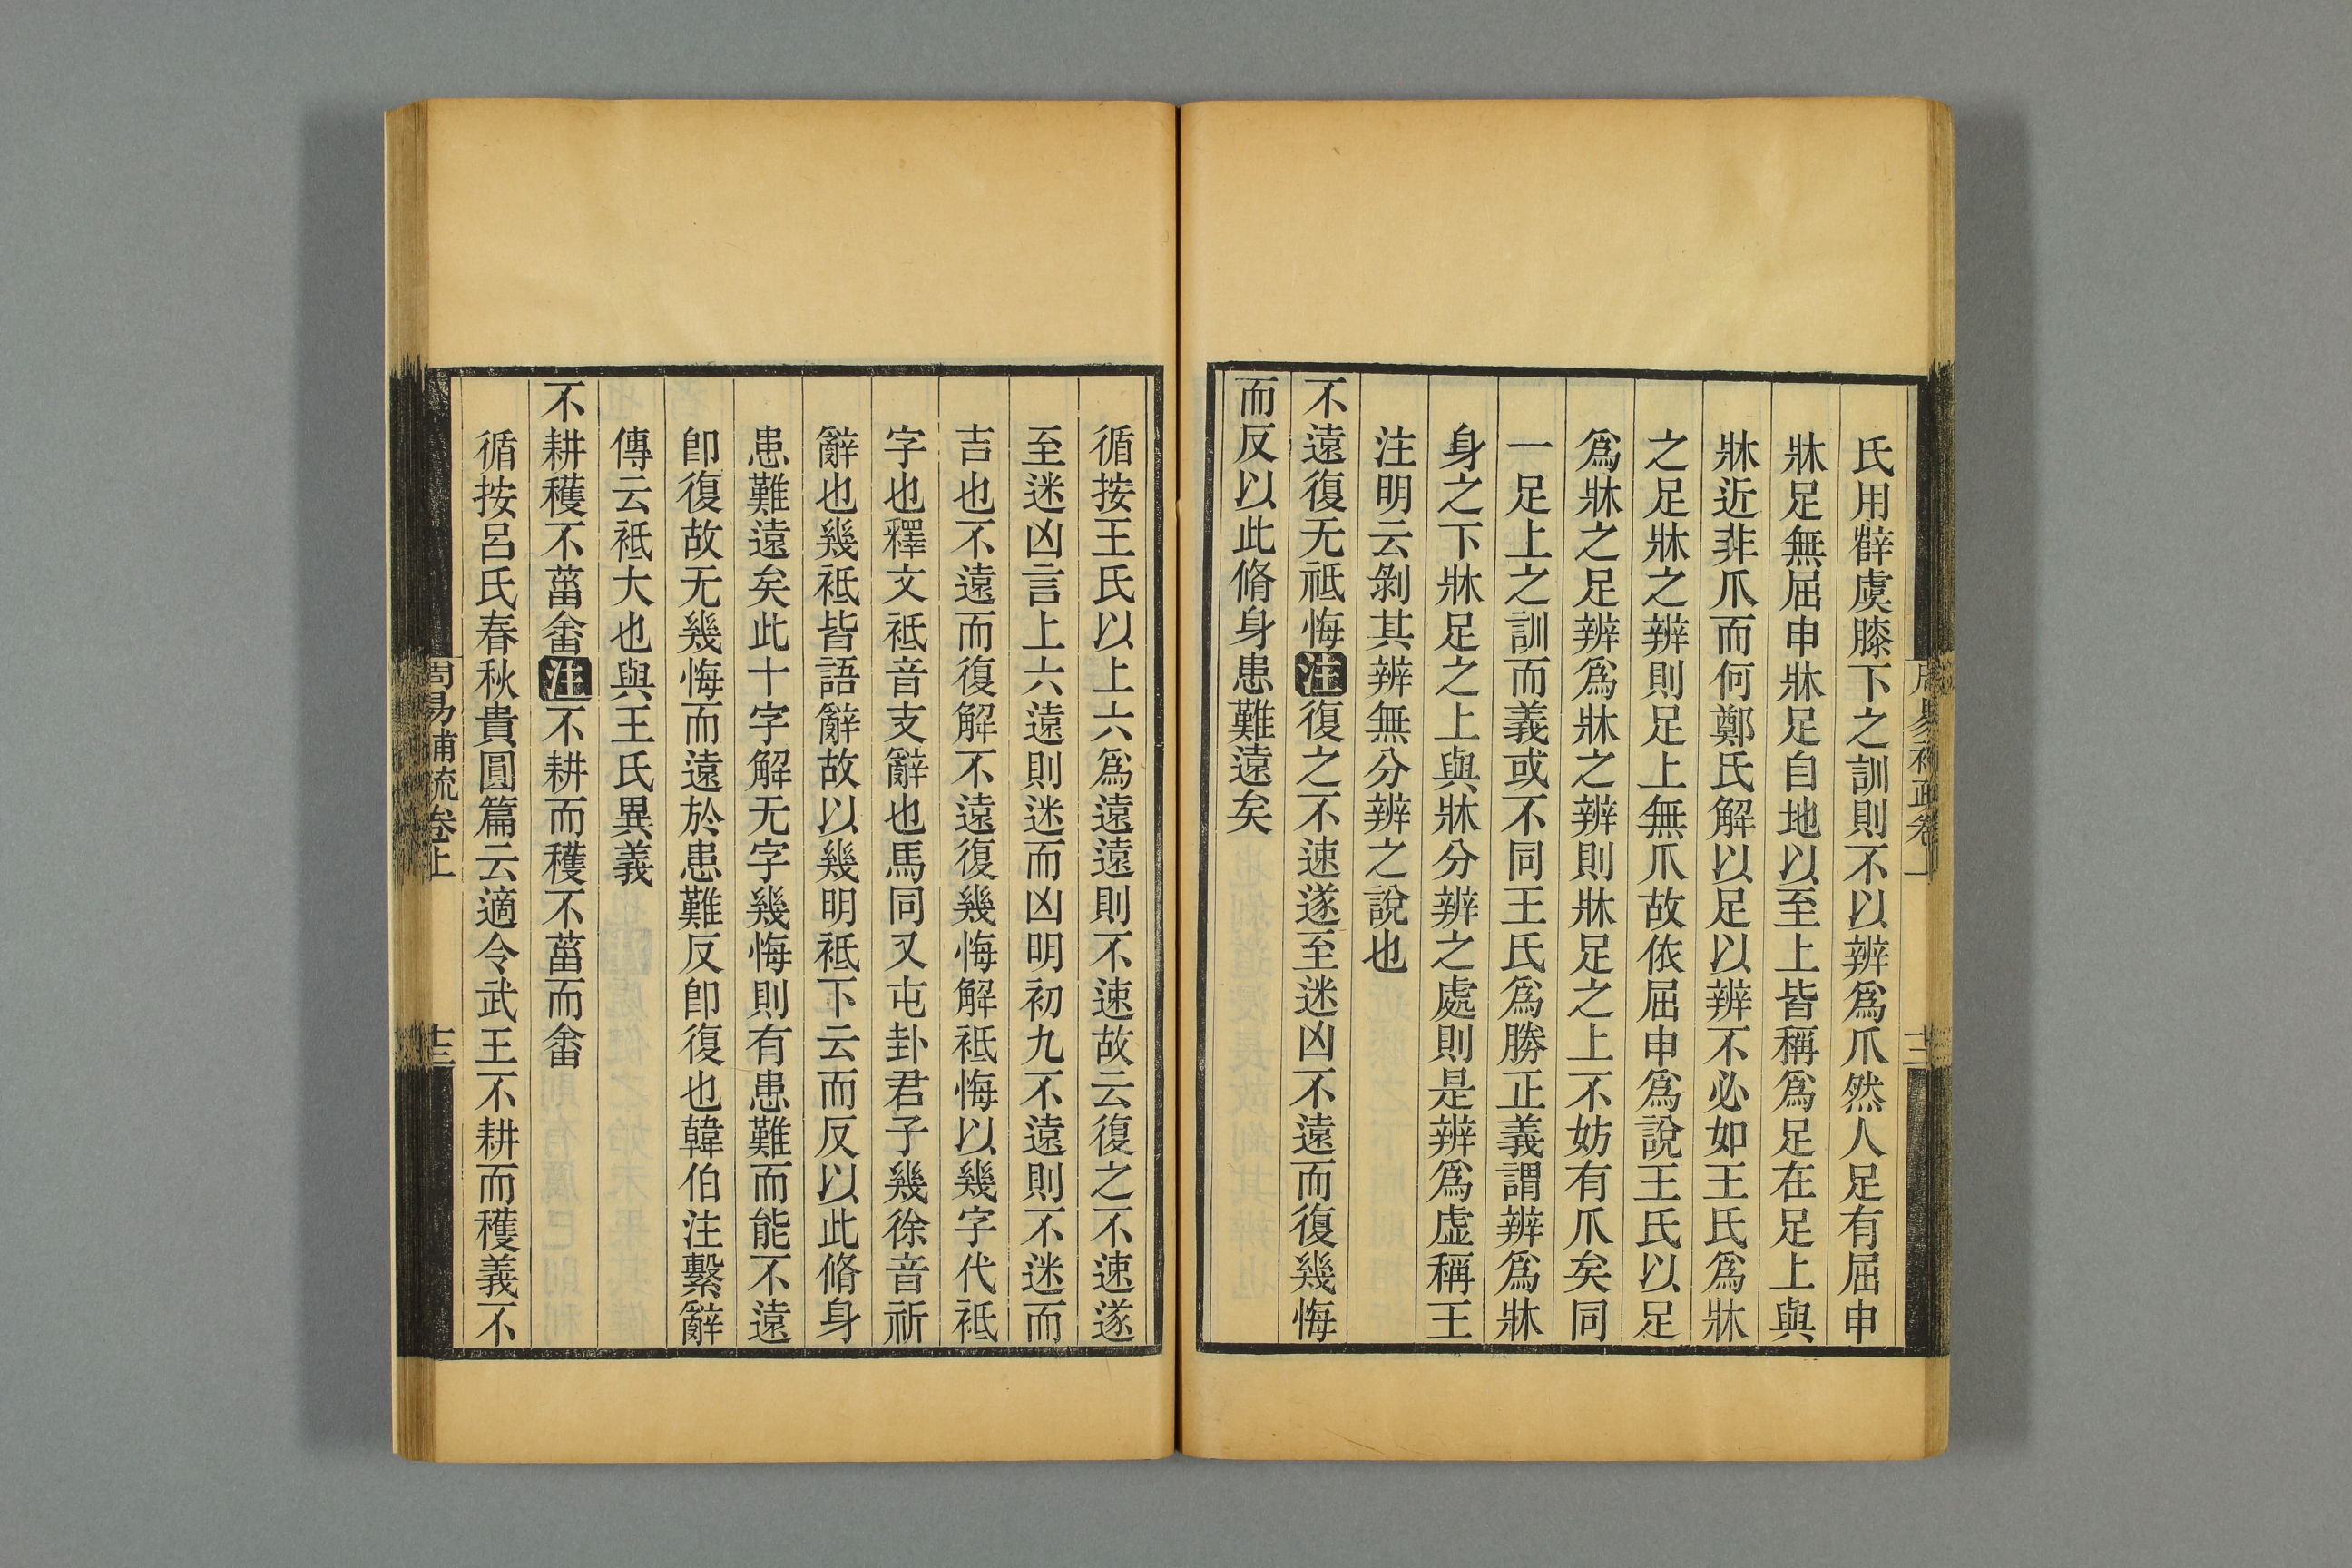 氏用辥虞膝下之訓則不以辨爲爪然人足有屈申
牀足無屈申牀足自地以至上皆稱爲足在足上與
牀近非爪而何鄭氏解以足以辨不必如王氏爲牀
之足牀之辨則足上無爪故依屈申爲說王氏以足
爲牀之足辨爲牀之辨則牀足之上不妨有爪矣同
一足上之訓而義或不同王氏爲勝正義謂辨爲牀
身之下牀足之上與牀分辨之處則是辨爲虛稱王
注明云剝其辨無分辨之說也
不遠復无祗悔注復之不速遂至迷凶不遠而復幾悔
而反以此脩身患難遠矣
循按王氏以上六爲遠遠則不速故云復之不速遂
至迷凶言上六遠則迷而凶明初九不遠則不迷而
吉也不遠而復解不遠復幾悔解祗悔以幾字代祗
字也釋文祗音支辭也馬同又屯卦君子幾徐音祈
辭也幾祗皆語辭故以幾明祗下云而反以此脩身
患難遠矣此十字解无字幾悔則有患難而能不遠
卽復故无幾悔而遠於患難反卽復也韓伯注繫辭
傳云祗大也與王氏異義
不耕穫不菑畬注不耕而穫不菑而畬
循按呂氏春秋貴圓篇云適令武王不耕而穫義不
周易補疏卷上
十三